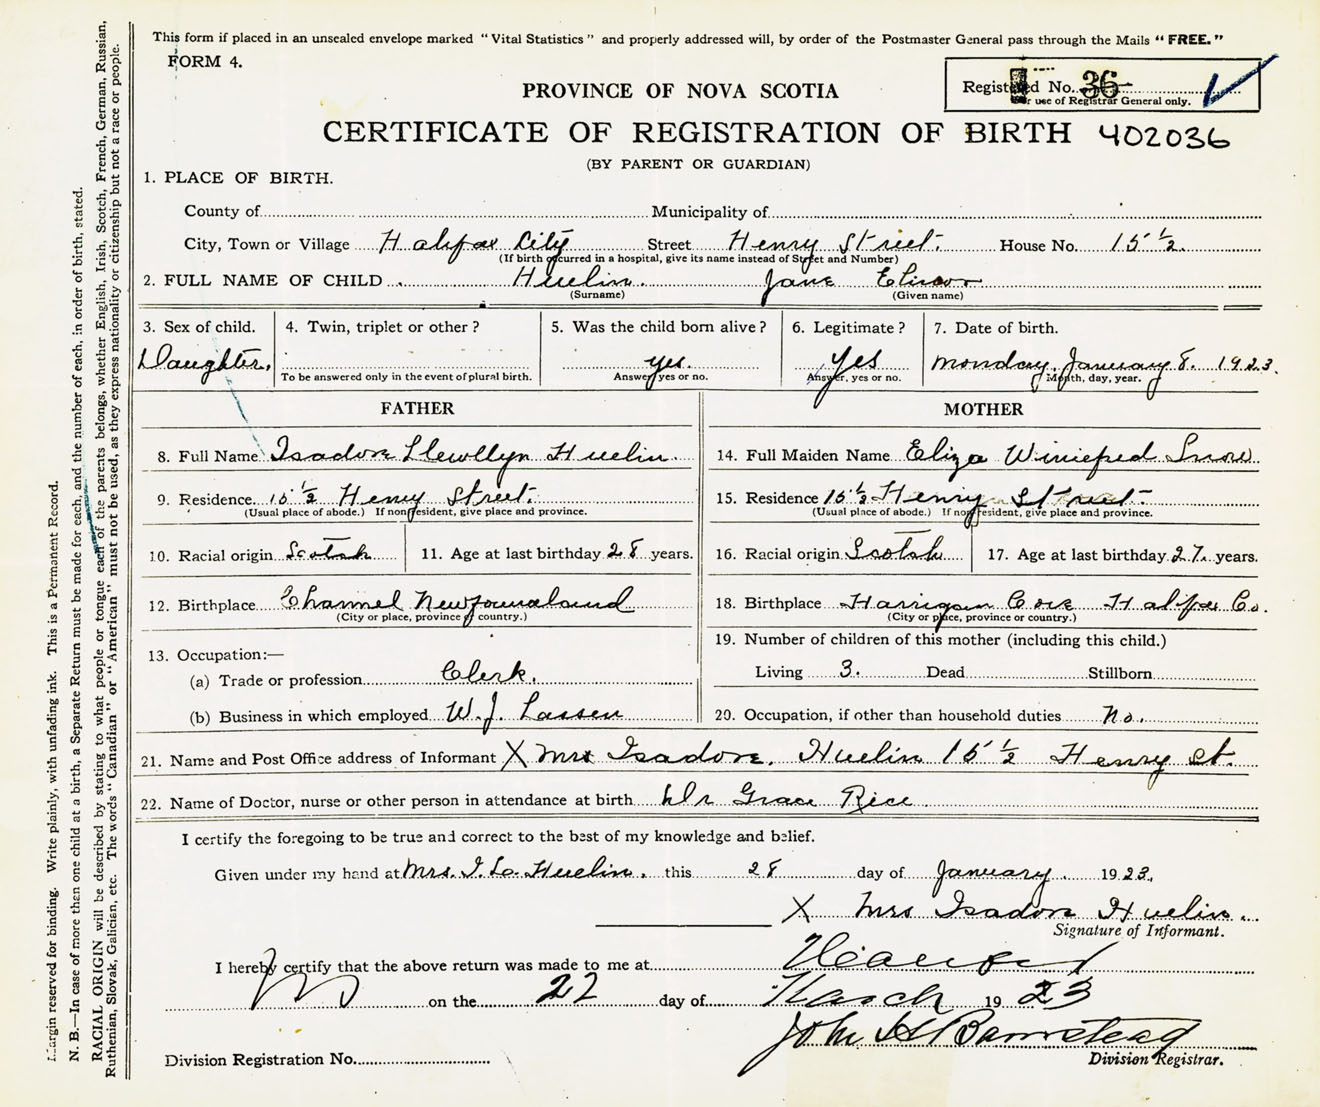 This form if placed in an unsealed envelope marked "Vital Statistics" and properly addressed will, by order of the Postmaster General pass through the Mails "FREE."
FORM 4.
Registered No. 36
For use of Registrar General only.
PROVINCE OF NOVA SCOTIA
CERTIFICATE OF REGISTRATION OF BIRTH 402036
(BY PARENT OR GUARDIAN)
1. PLACE OF BIRTH.
County of Municipality of
City, Town or Village Halifax City Street Henry Street. House No. 15 ½.
(If birth occurred in a hospital, give its name instead of Street and Number)
2. FULL NAME OF CHILD Huelin. Jane Elinor
(Surname) (Given name)
3. Sex of child. 4. Twin, triplet or other? 5. Was the child born alive? 6. Legitimate? 7. Date of birth.
Daughter. yes. Yes Monday, January 8. 1923.
To be answered only in the event of plural birth. Answer yes or no. Answer, yes or no. Month, day, year.
FATHER MOTHER
8. Full Name Isadore Llewllyn Huelin. 14. Full Maiden Name Eliza Winiefred Snow
9. Residence 15 ½ Henry Street. 15. Residence 15 ½ Henry Street
(Usual place of abode.) If non resident, give place and province. (Usual place of abode.) If non resident, give place and province.
10. Racial origin Scotch 11. Age at last birthday 28 years. 16. Racial origin Scotch 17. Age at last birthday 27 years.
12. Birthplace Channel Newfoundland 18. Birthplace Harrigan Cove Halifax Co.
(City or place, province or country.) (City or place, province or country.)
13. Occupation:— 19. Number of children of this mother (including this child.)
(a) Trade or profession Clerk. Living 3. Dead Stillborn
(b) Business in which employed W. J. Lassen 20. Occupation, if other than household duties no.
21. Name and Post Office address of Informant X Mrs Isadore Huelin 15 ½ Henry St.
22. Name of Doctor, nurse or other person in attendance at birth Dr Grace Rice
I certify the foregoing to be true and correct to the best of my knowledge and belief.
Given under my hand at Mrs. I. L. Huelin. this 28 day of January. 1923.
X Mrs Isadore Huelin.
Signature of Informant.
I hereby certify that the above return was made to me at Halifax
on the 22 day of March 1923
John H Barnstead
Division Registration No. Division Registrar.
Margin reserved for binding. Write plainly, with unfading ink. This is a Permanent Record.
N. B.—In case of more than one child at a birth, a Separate Return must be made for each, and the number of each, in order of birth, stated.
RACIAL ORIGIN will be described by stating to what people or tongue each of the parents belongs, whether English, Irish, Scotch, French, German, Russian,
Ruthenian, Slovak, Galician, etc. The words "Canadian" or "American" must not be used, as they express nationality or citizenship but not a race or people.